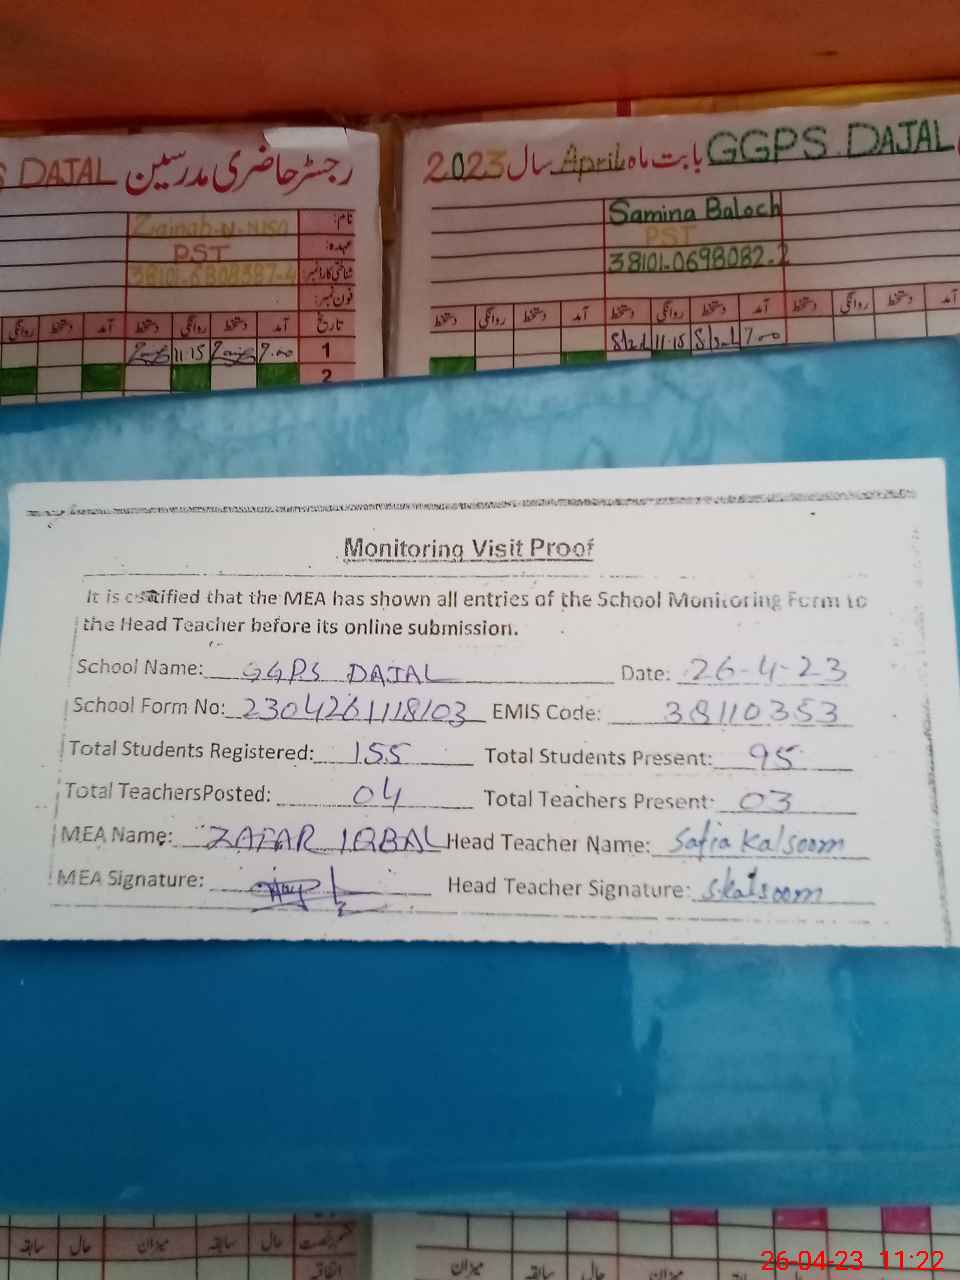 S DAJAL رجسٹر حاضری مدرسین
نام:
عہدہ: PST
شناختی کارڈ نمبر: 38101-6808387-4
فون نمبر:
روانگی دستخط آمد دستخط روانگی دستخط آمد تاریخ
11-15 7.00 1
2
GGPS DAJAL بابت ماہ April سال 2023
Samina Baloch
PST
38101-0698082-2
دستخط روانگی دستخط آمد دستخط روانگی دستخط آمد دستخط روانگی دستخط آمد
11-15 7.00
Monitoring Visit Proof
It is certified that the MEA has shown all entries of the School Monitoring Form to
the Head Teacher before its online submission.
School Name: GGPS DAJAL Date: 26-4-23
School Form No: 2304261118103 EMIS Code: 38110353
Total Students Registered: 155 Total Students Present: 95
Total TeachersPosted: 04 Total Teachers Present: 03
MEA Name: ZAFAR IQBAL Head Teacher Name: Safia Kalsoom
MEA Signature: Head Teacher Signature: Skalsoom
سابقہ حال میزان سابقہ حال
میزان سابقہ حال میزان
26-04-23 11:22